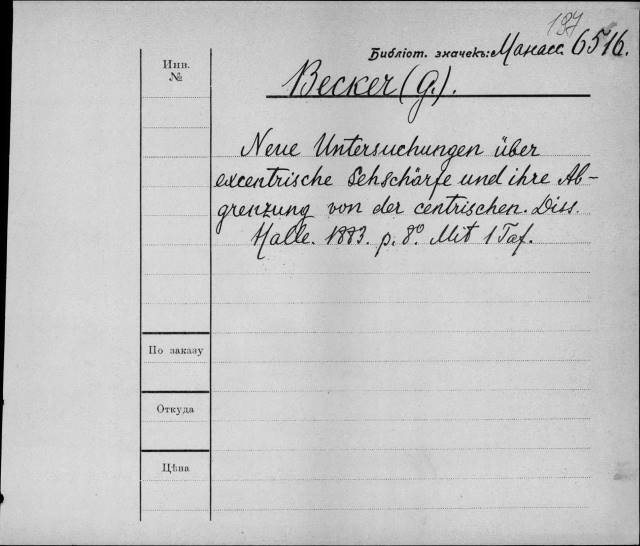 197
Библіот. значекъ: Манасс. 6516.
Инв.
№
Becker (G.).
Neue Untersuchungen über
excentrische Sehschärfe und ihre Ab-
grenzung von der centrischen. Diss.
Halle. 1883. p. 8º. Mit 1 Taf.
По заказу
Откуда
Цѣна